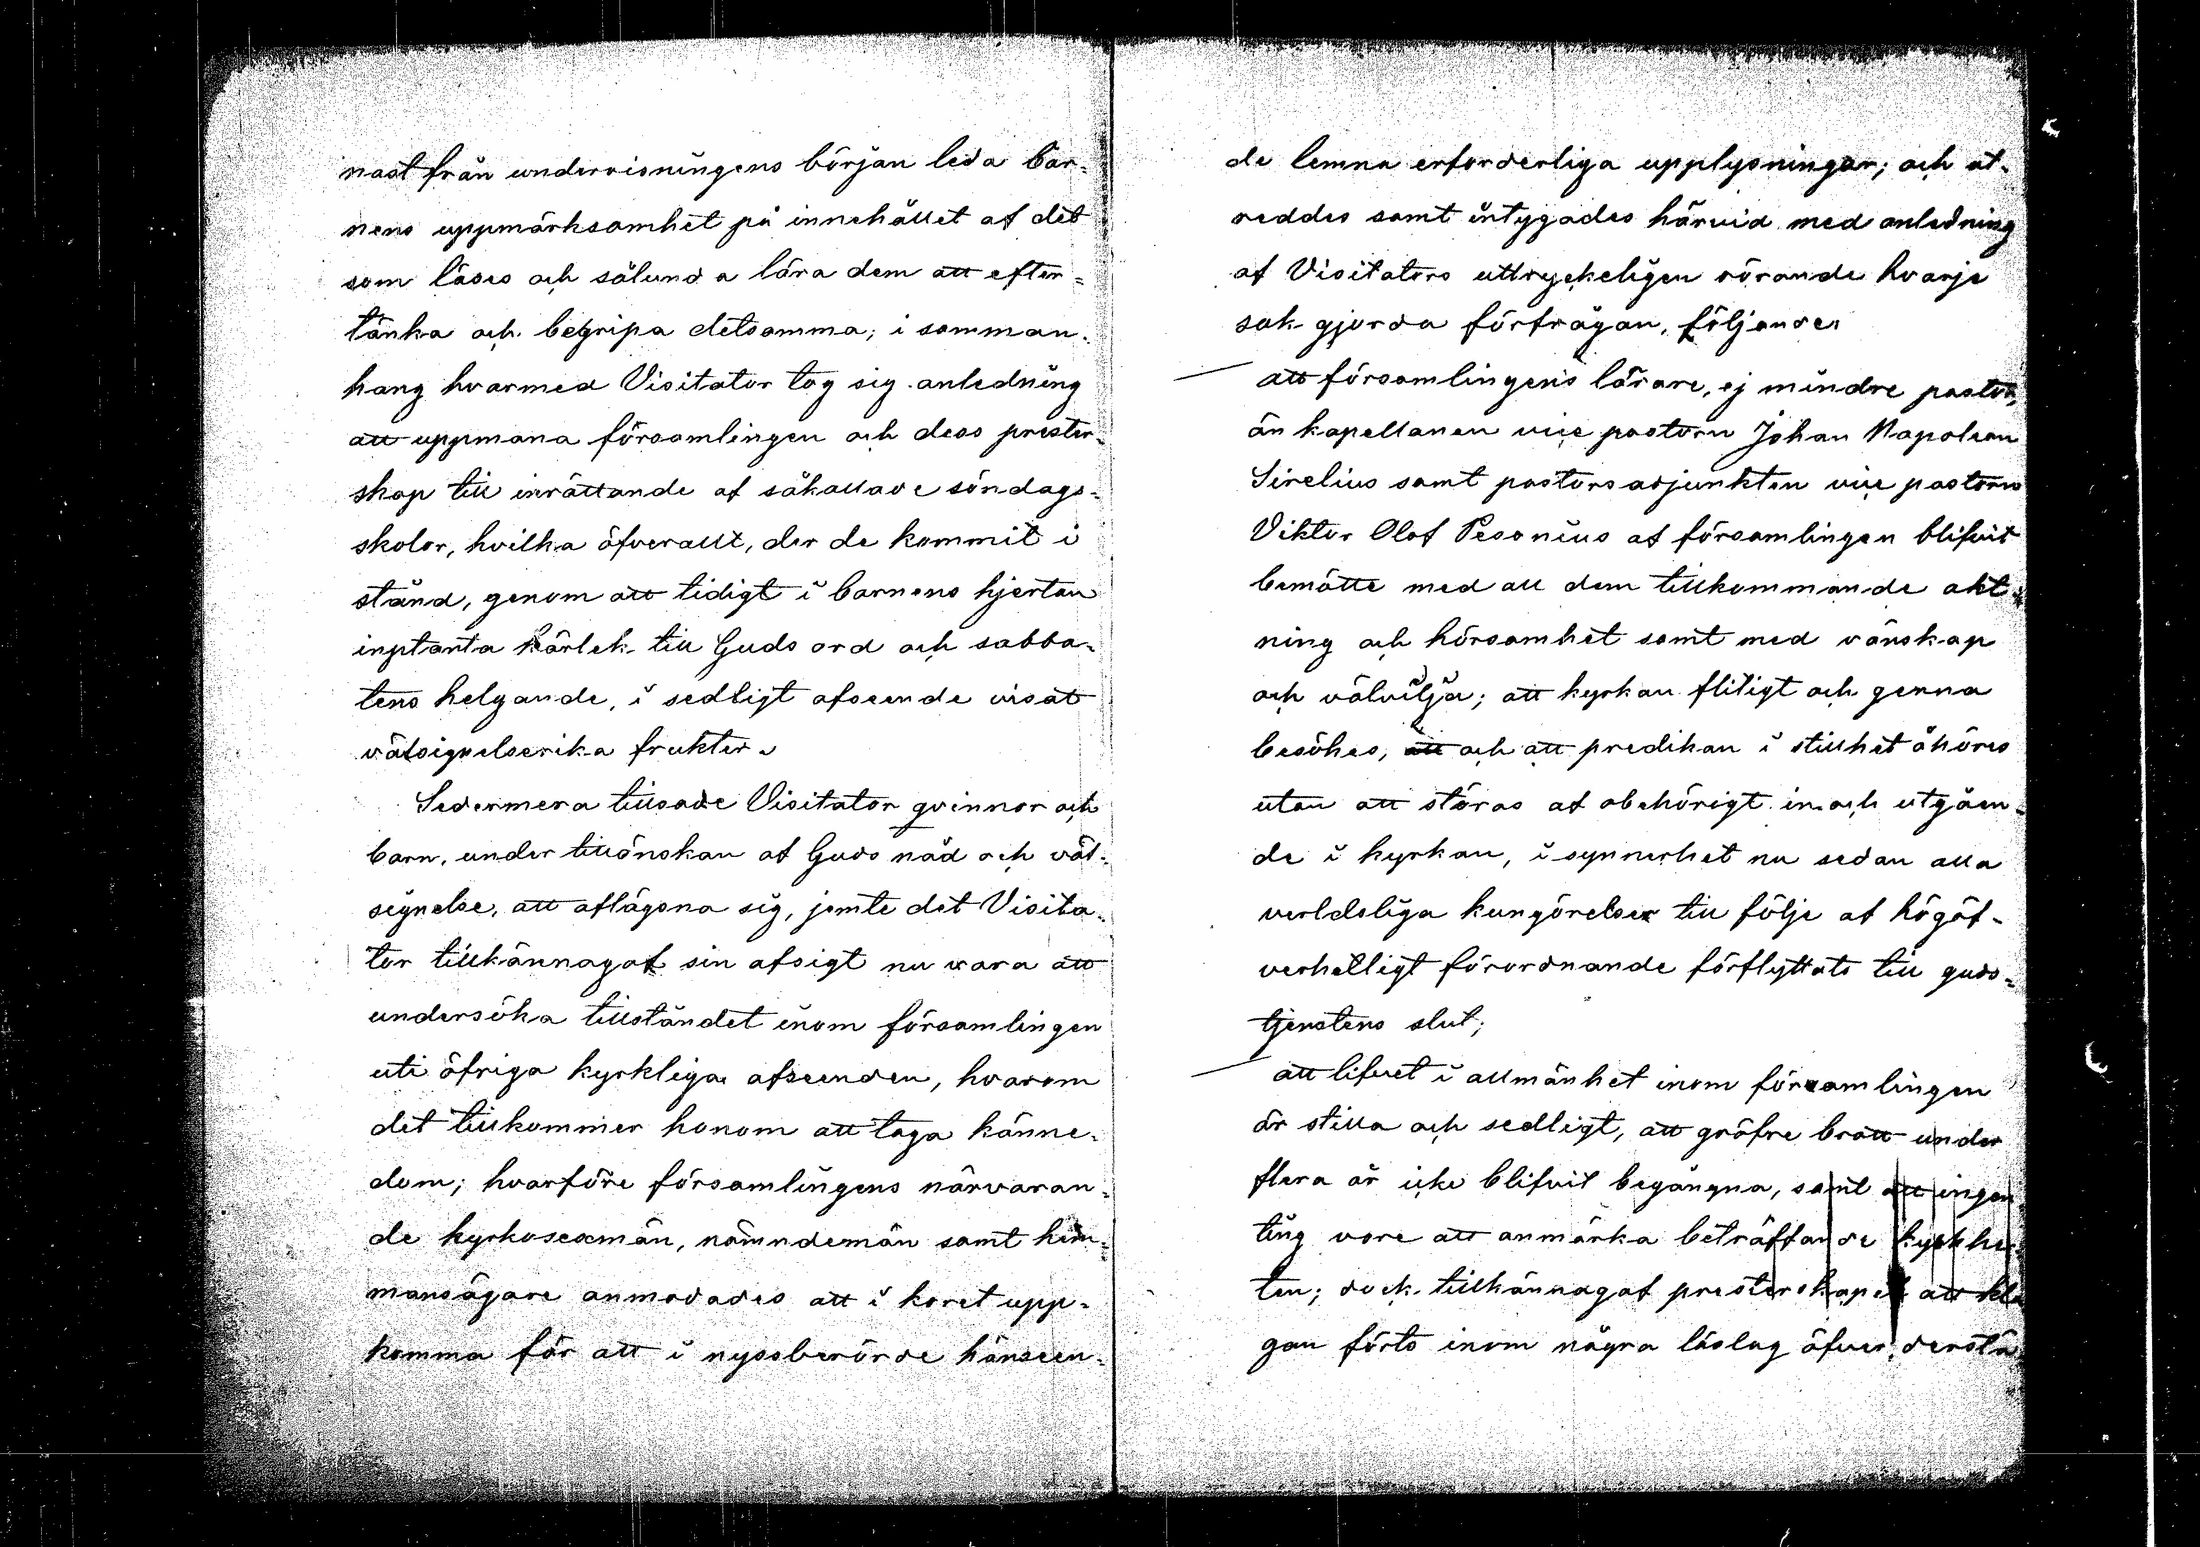 nast från undervisningens början leda bar-
nens uppmärksamhet på innehållet af det
som läses och sålunda lära dem att efter-
tänka och begripa detsamma; i samman-
hang hvarmed Visitator tog sig anledning
att uppmana församlingen och dess prester-
skap till inrättande af såkallade söndags-
skolor, hvilka öfverallt, der de kommit i
stånd, genom att tidigt i barnens hjertan
inplanta kärlek till Guds ord och sabba-
tens helgande, i sedligt afseende visat
välsignelserika frukter.
Sedermera tillsade Visitator qvinnor och
barn, under tillönskan af Guds nåd och väl-
signelse, att aflägsna sig, jemte det Visita-
tor tillkännagaf sin afsigt nu vara att
undersöka tillståndet inom församlingen
uti öfriga kyrkliga afseenden, hvarom
det tillkommer honom att taga känne-
dom; hvarföre församlingens närvaran-
de kyrkosexmän, nämndemän samt hem-
mansägare anmodades att i koret upp-
komma för att i nyssberörde hänseen-
de lemna erforderliga upplysningar; och ut-
reddes samt intygades härvid med anledning
af Visitators uttryckeligen rörande hvarje
sak gjorda förfrågan, följande:
att församlingens lärare, ej mindre pastor,
än kapellanen vice pastorn Johan Napoleon
Sirelius samt pastorsadjunkten vice pastorn
Viktor Olof Pesonius af församlingen blifvit
bemötte med all dem tillkommande akt-
ning och hörsamhet samt med vänskap
och välvilja; att kyrkan flitigt och gerna
besökes, att och att predikan i stillhet åhöres
utan att störas af obehörigt in och utgåen-
de i kyrkan, i synnerhet nu sedan alla
verldsliga kungörelser till följe af högöf-
verhetligt förordnande förflyttats till guds-
tjenstens slut;
att lifvet i allmänhet inom församlingen
är stilla och sedligt, att gröfre brott under
flera år icke blifvit begångna, samt att ingen
ting vore att anmärka beträffande
ten; dock tillkännagaf presterskapet att kla
gan förts inom några läslag öfver derstä